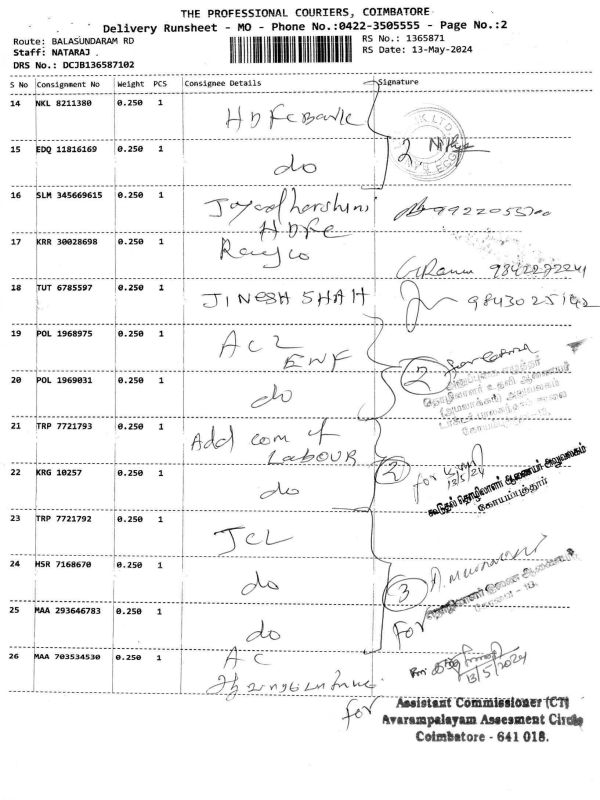 THE PROFESSIONAL COURIERS, COIMBATORE
Delivery Runsheet - MO - Phone No.:0422-3505555 - Page No.:2
Route: BALASUNDARAM RD
RS No.: 1365871
Staff: NATARAJ .
RS Date: 13-May-2024
DRS No.: DCJB136587102
S No Consignment No Weight PCS Consignee Details Signature
14 NKL 8211380 0.250 1 HDFC Bank
15 EDQ 11816169 0.250 1 do 2
16 SLM 345669615 0.250 1 HDFC
17 KRR 30028698 0.250 1 9842272241
18 TUT 6785597 0.250 1 JINESH SHAH 9843025142
19 POL 1968975 0.250 1 ACL
20 POL 1969031 0.250 1 do 2
21 TRP 7721793 0.250 1 Add com of
LABOUR
22 KRG 10257 0.250 1 do 2 for 13/5/24
கூடுதல் தொழிலாளர் ஆணையர் அலுவலகம்
கோயம்புத்தூர்
23 TRP 7721792 0.250 1 JCL
24 HSR 7168670 0.250 1 do 3
25 MAA 293646783 0.250 1 do for
26 MAA 703534530 0.250 1 AC 13/5/2024
for
Assistant Commissioner (CT)
Avarampalayam Assesment Circle
Coimbatore - 641 018.